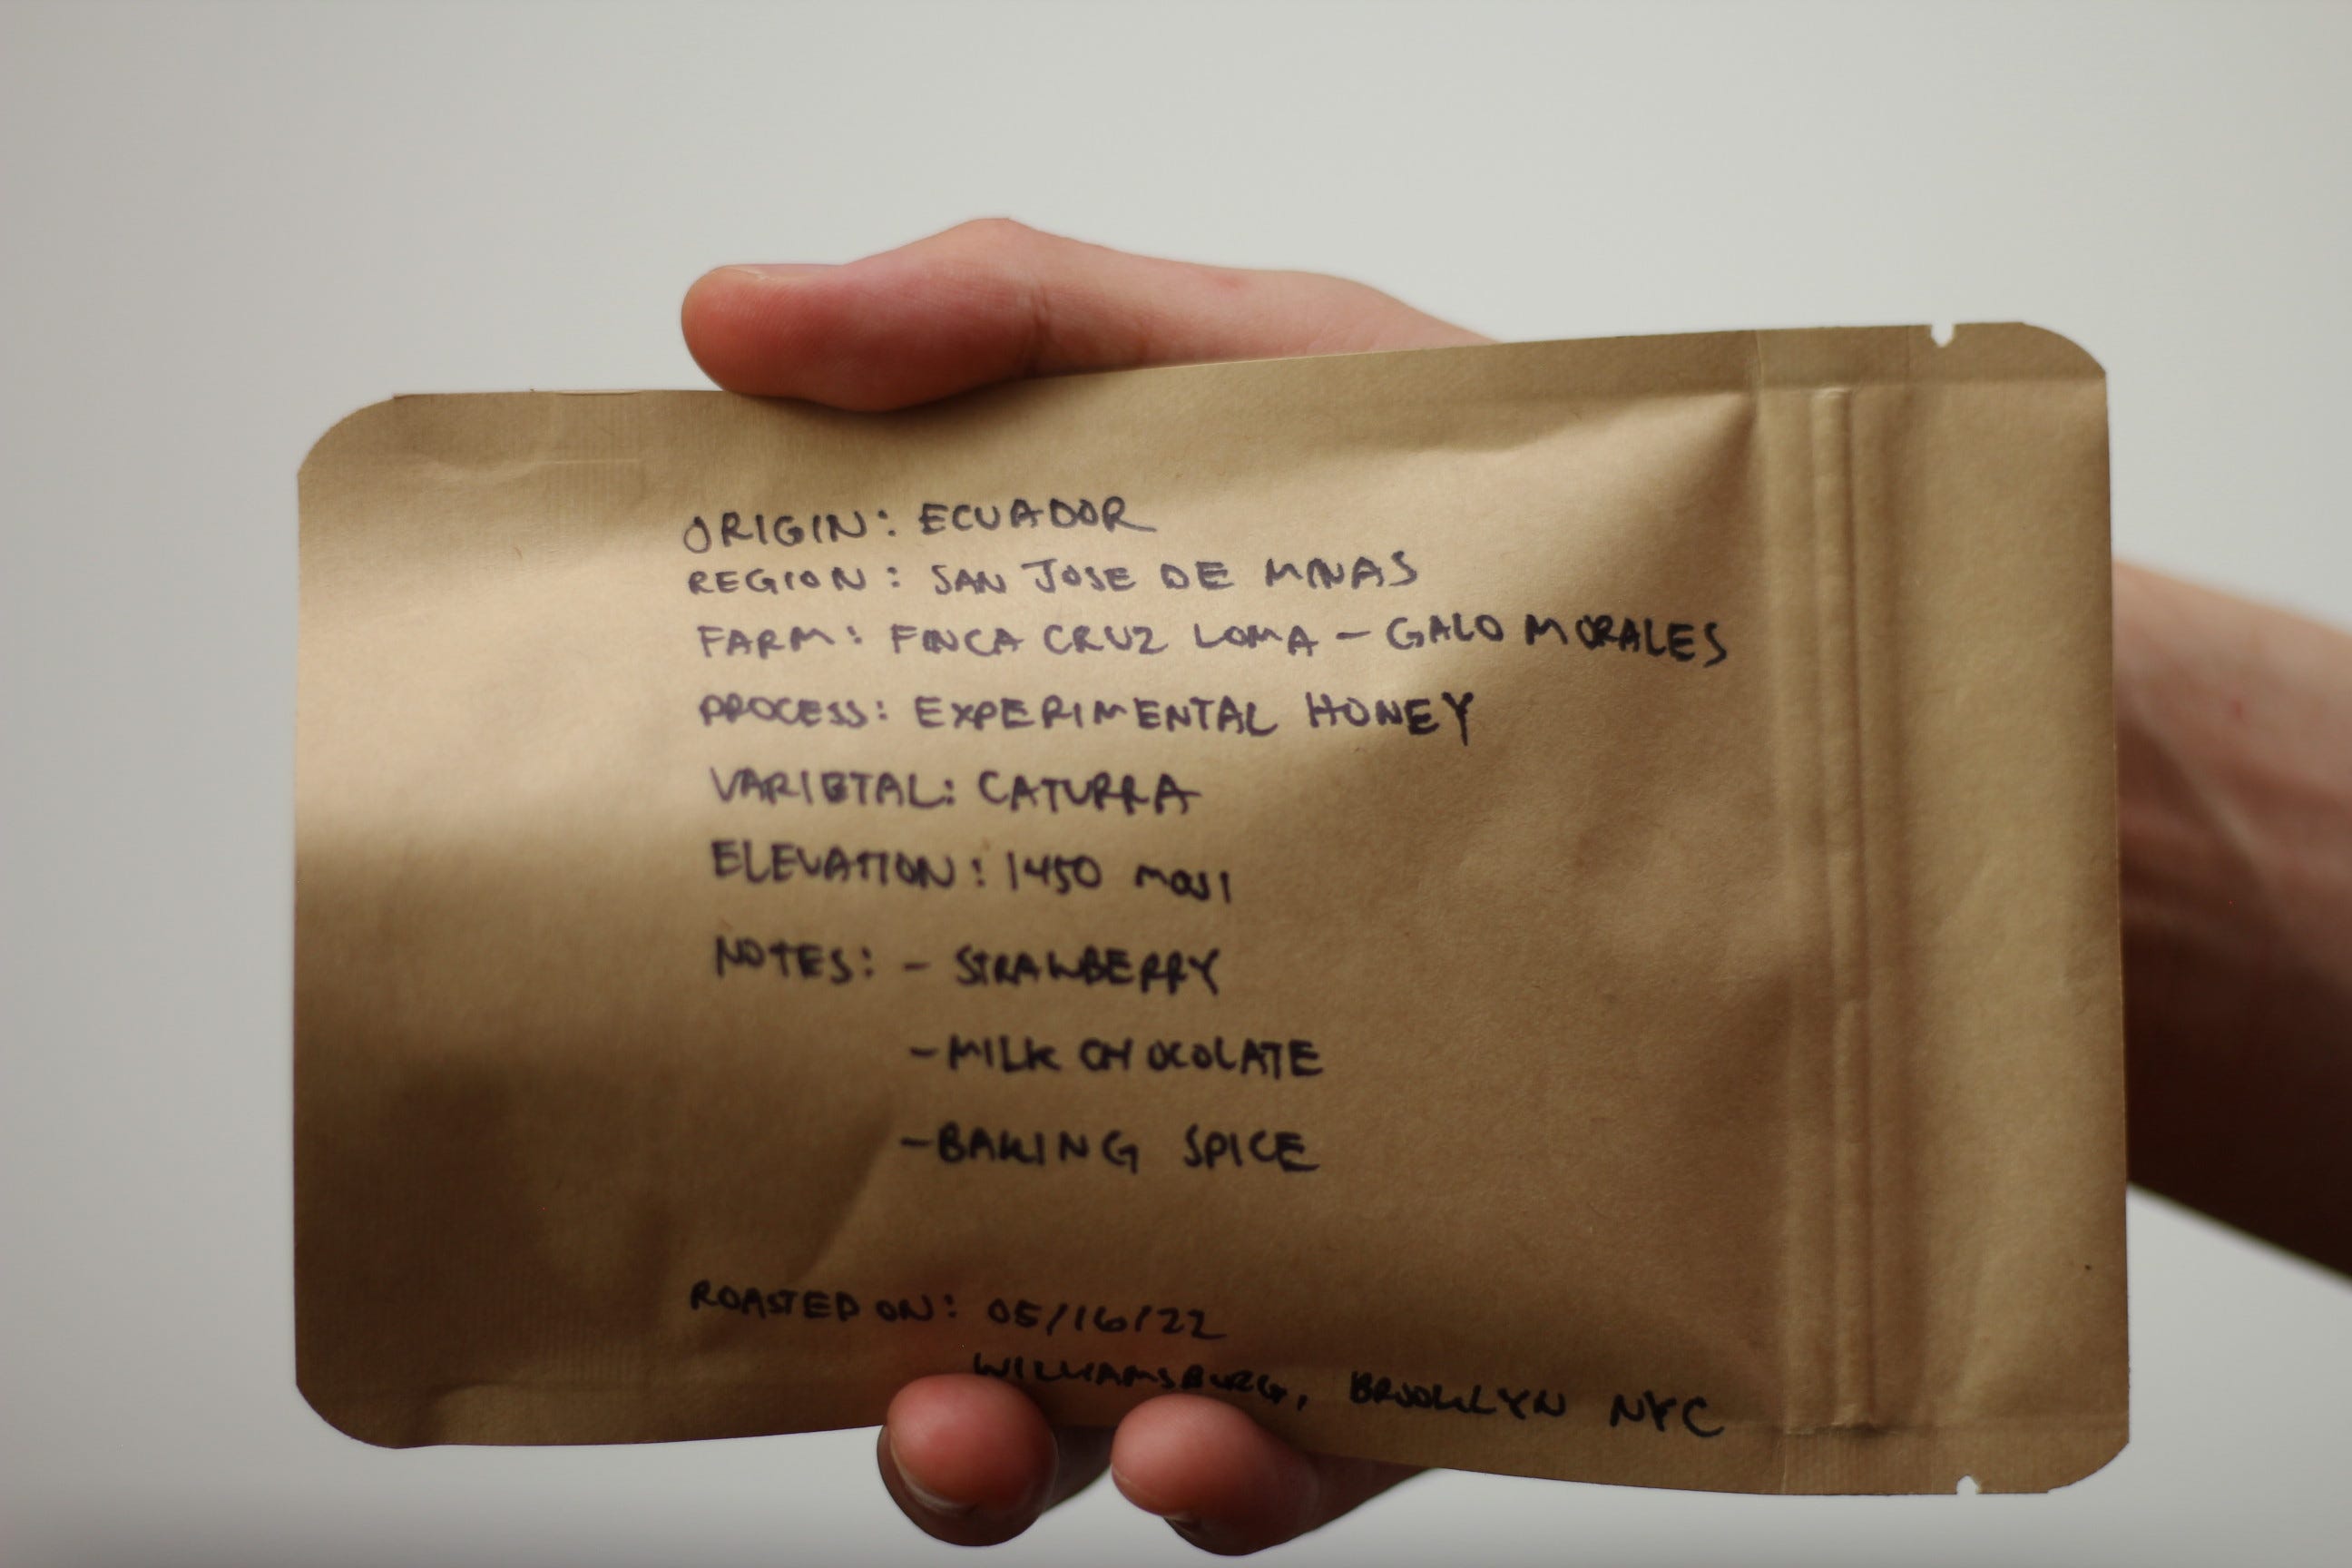 ORIGIN: ECUADOR
REGION: SAN JOSE DE MINAS
FARM: FINCA CRUZ LOMA - GALO MORALES
PROCESS: EXPERIMENTAL HONEY
VARIETAL: CATURRA
ELEVATION: 1450 masl
NOTES: - STRAWBERRY
- MILK CHOCOLATE
- BAKING SPICE
ROASTED ON: 05/16/22
WILLIAMSBURG, BROOKLYN NYC